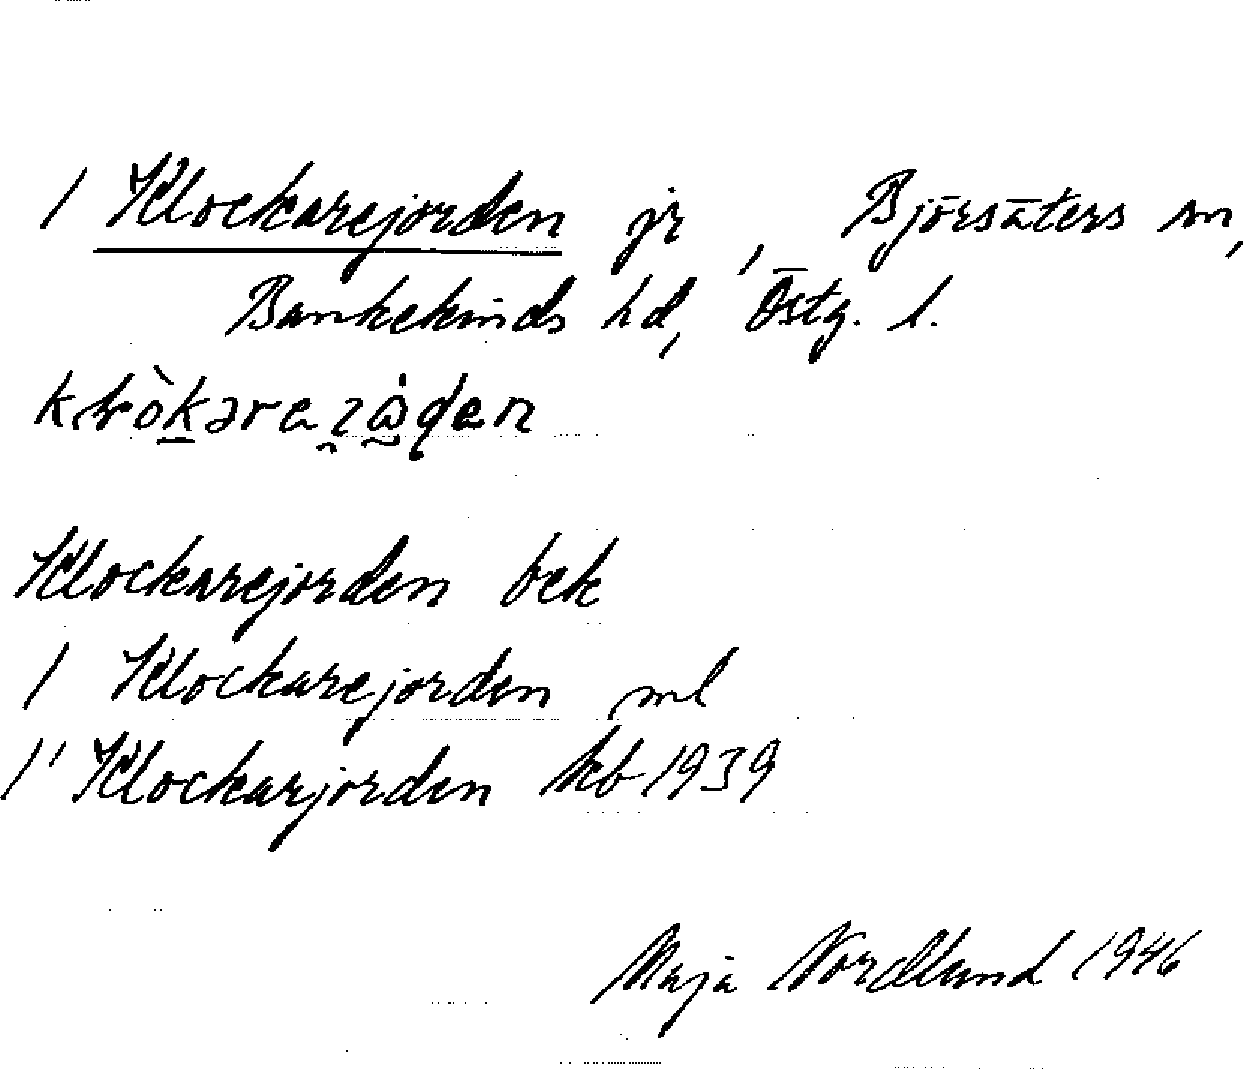 / Klockarejorden jr, Björsäters sn,
Bankekinds hd, Östg. l.
Klockarejorden bek
/ Klockarejorden ml
/' Klockarjorden kb 1939
Maja Nordlund 1946